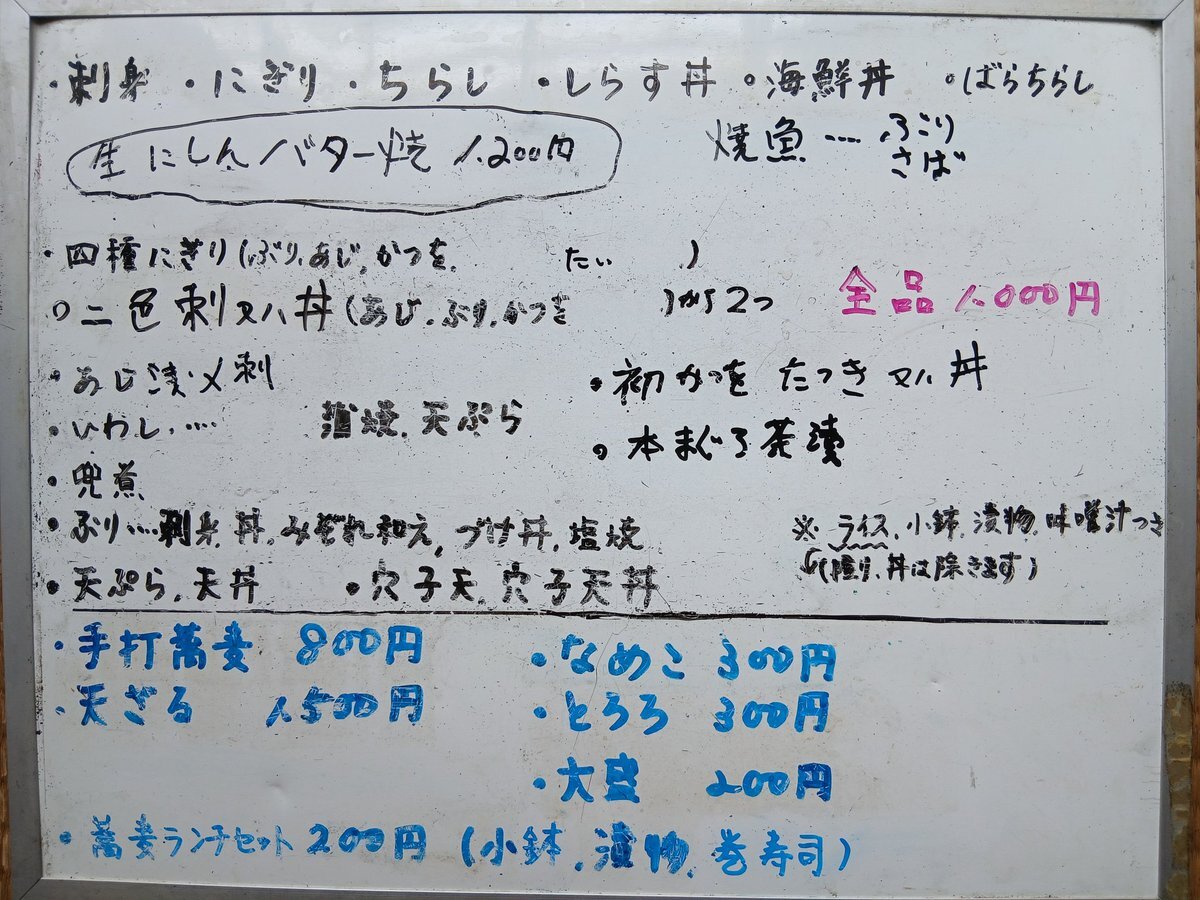 ・刺身 ・にぎり ・ちらし ・しらす丼 ○海鮮丼 ○ばらちらし
生にしんバター焼 1,200円
焼魚…ぶり
さば
・四種にぎり(ぶり、あじ、かつを、 たい )
○二色刺又ハ丼(あじ、ぶり、かつを )から2つ
全品 1,000円
・あじ漬・〆刺
・いわし…… 蒲焼、天ぷら
・初かつを たつき又ハ丼
・本まぐろ茶漬
・兜煮
・ぶり……刺身、丼、みぞれ和え、づけ丼、塩焼
・天ぷら、天丼 ・穴子天、穴子天丼
※ライス、小鉢、漬物、味噌汁つき
(握り、丼は除きます)
・手打蕎麦 800円
・天ざる 1,500円
・なめこ 300円
・とろろ 300円
・大盛 200円
・蕎麦ランチセット 200円 (小鉢、漬物、巻寿司)